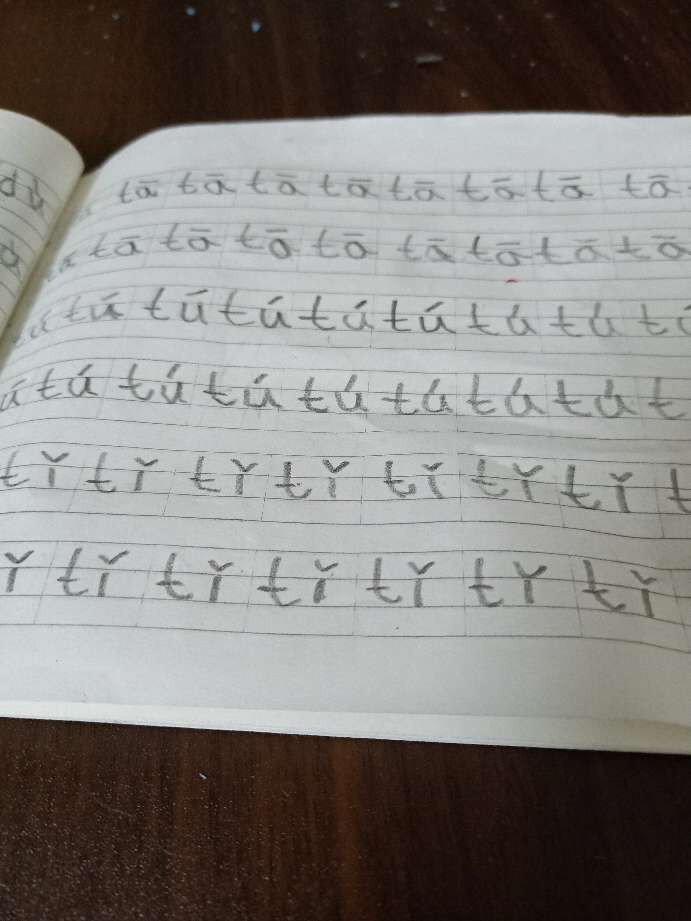 tā tā tā tā tā tā tā tā
tā tā tā tā tā tā tā tā
tú tú tú tú tú tú tú
tú tú tú tú tú tú tú
tǐ tǐ tǐ tǐ tǐ tǐ tǐ
tǐ tǐ tǐ tǐ tǐ tǐ